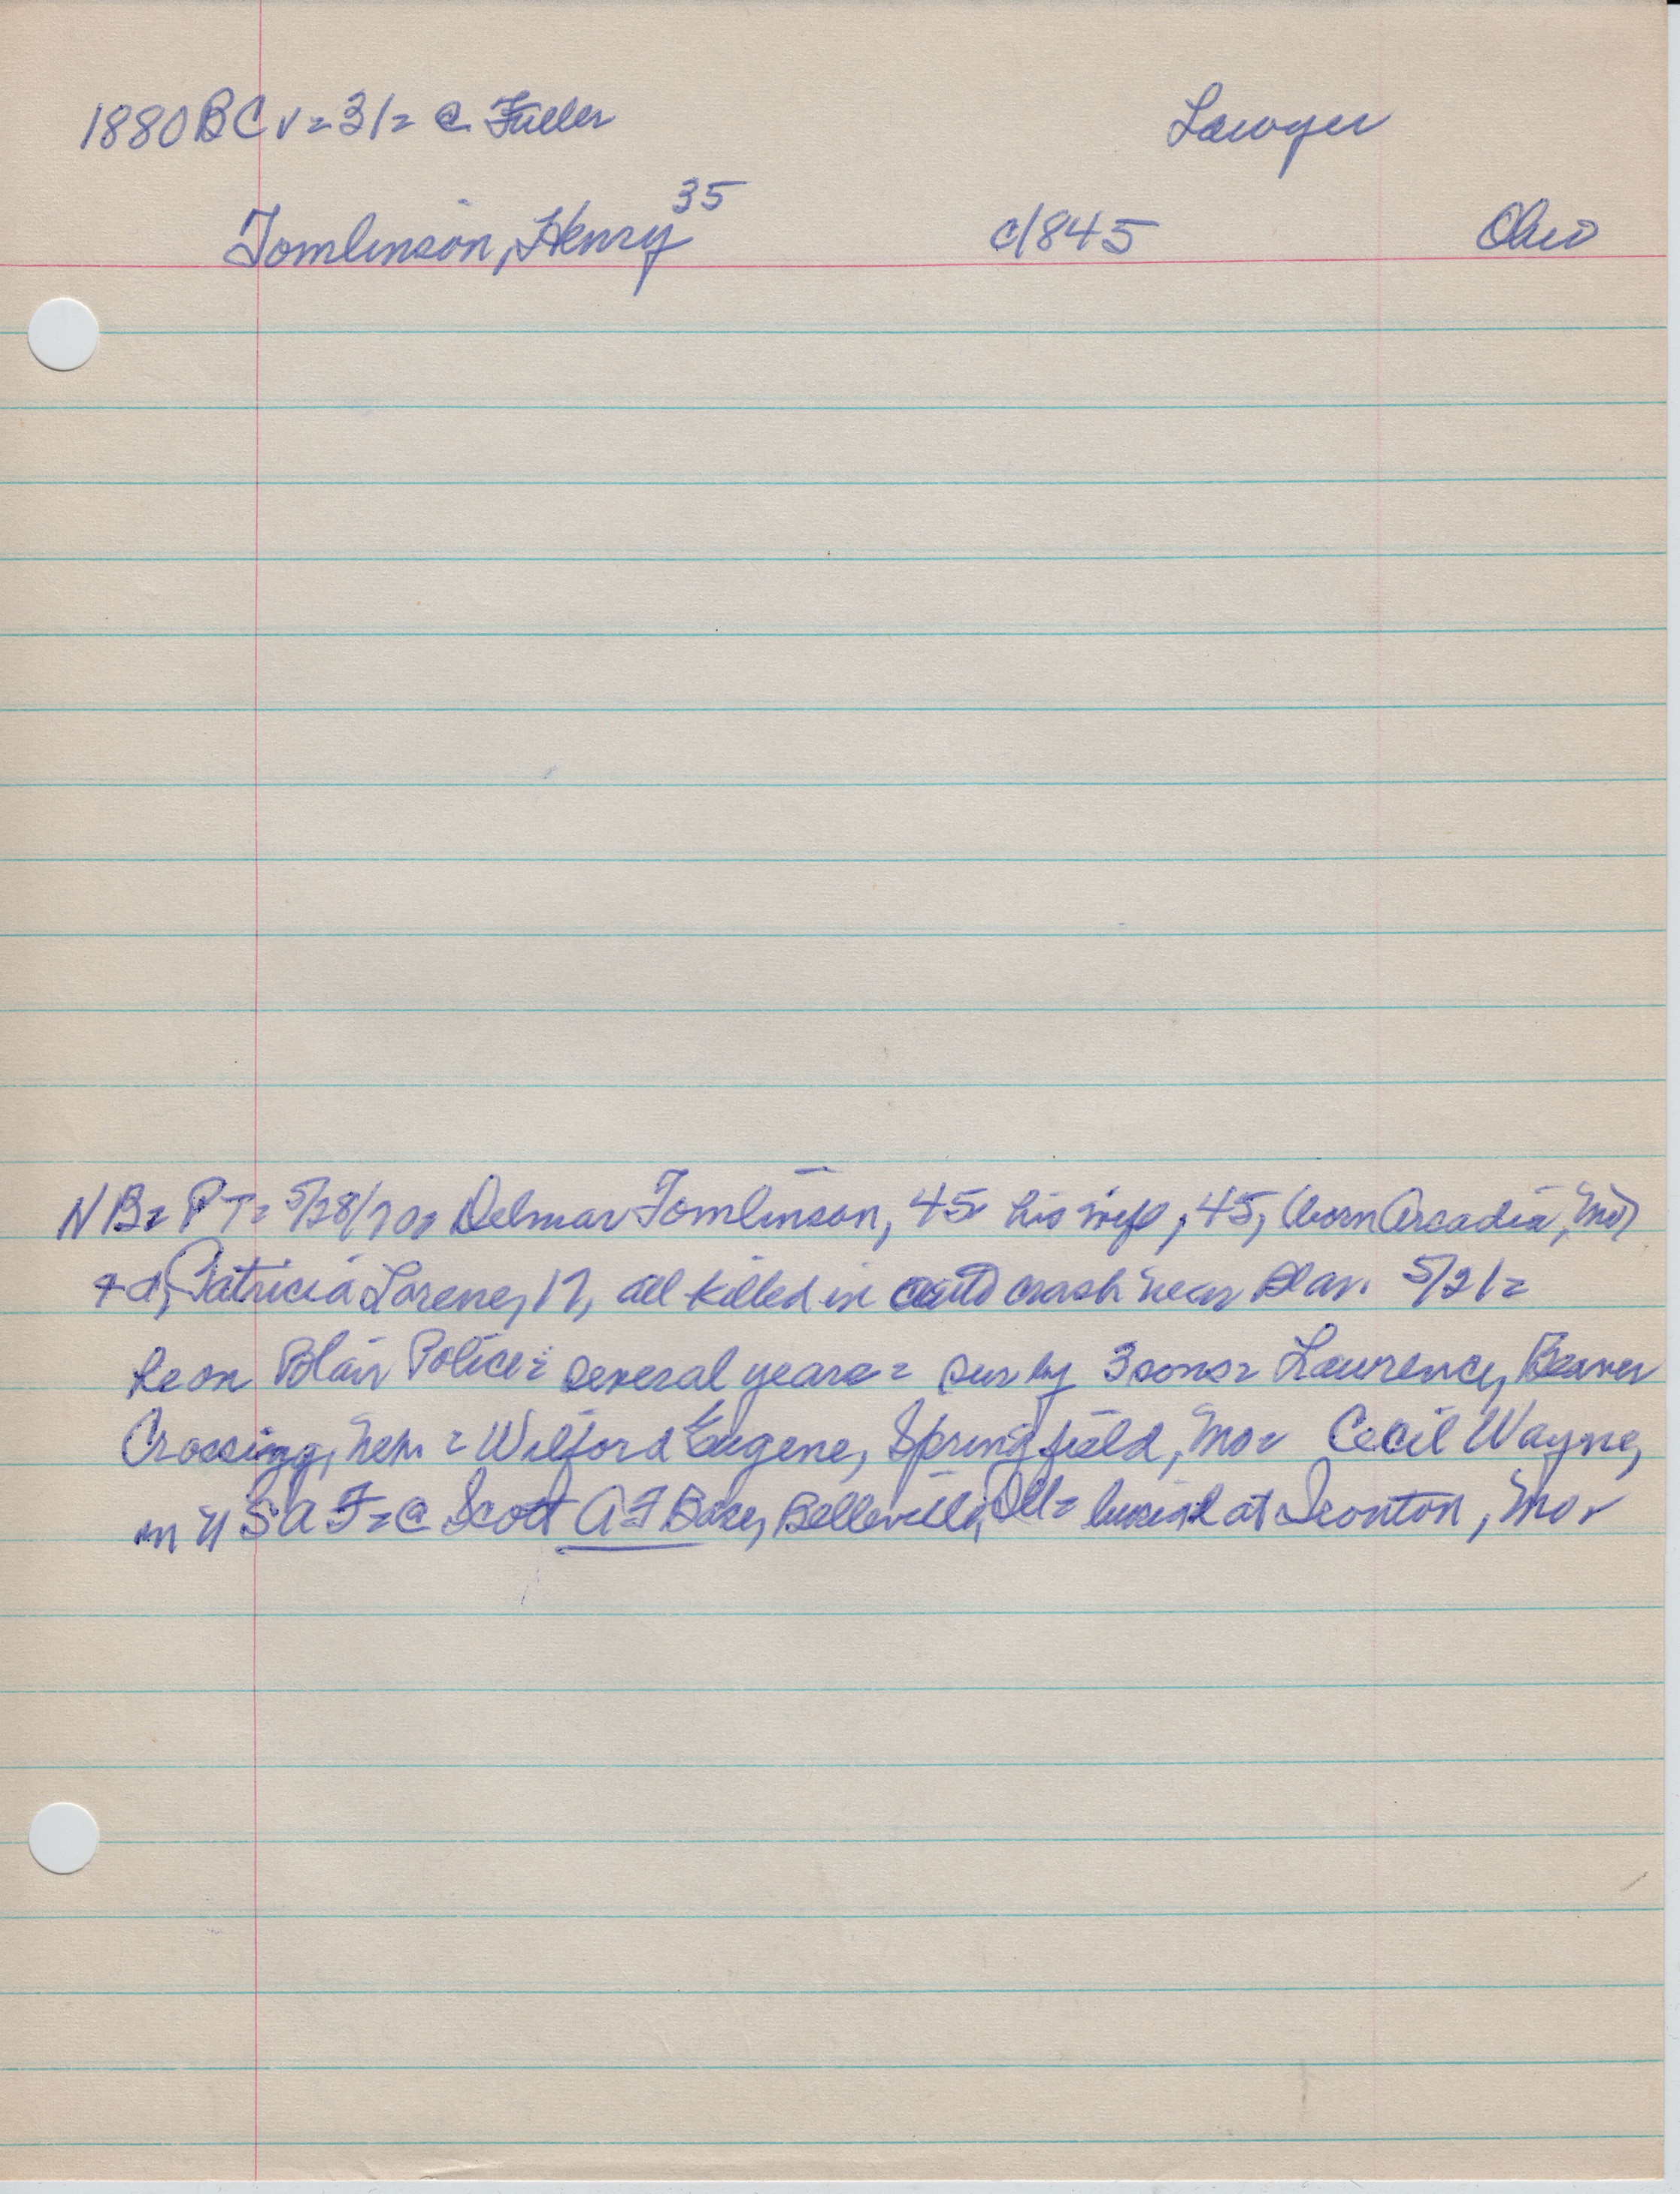 1880 BC v = 31 = @ Fuller Lawyer
Tomlinson, Henry 35 c1845 Ohio
NB = PT = 5/28/70 = Delmar Tomlinson, 45 his wife, 45, (born Arcadia, Mo)
+ d, Patricia Lorene, 17, all killed in auto crash near 5/21 =
he on Blair Police = several years = sur by 3 sons = Lawrence, Beaver
Crossing, Neb. = Wilford Eugene, Springfield, Mo = Cecil Wayne,
in USAF = @ Scott AF Base, Belleville, Ill = burial at Ironton, Mo =